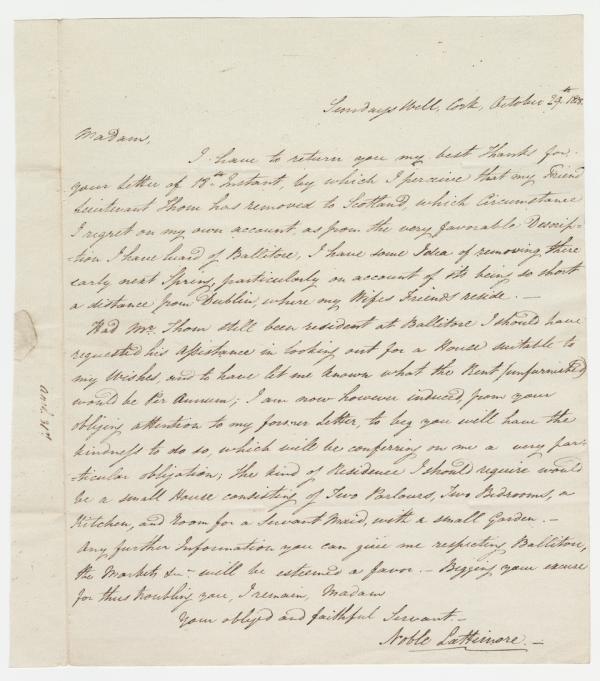 Sundays Well, Cork, October 29th
Madam,
I have to return you my best Thanks for
your Letter of 18th Instant, by which I perceive that my Friend
Lieutenant Thom has removed to Scotland, which Circumstance
I regret on my own account, as from the very favorable Descrip-
-tion I have heard of Ballitore, I have some Idea of removing there
early next Spring, particularly on account of its being so short
a distance from Dublin, where my Wifes Friends reside. —
Had Mr. Thom still been resident at Ballitore I should have
requested his Assistance in looking out for a House suitable to
my Wishes, and to have let me known what the Rent (unfurnished)
would be Per Annum; I am now however induced, from your
obliging attention to my former Letter, to beg you will have the
kindness to do so, which will be conferring on me a very par-
-ticular obligation; The kind of Residence I should require would
be a small House consisting of Two Parlours, Two Bedrooms, a
Kitchen, and Room for a Servant Maid, with a small Garden. —
Any further Information you can give me respecting Ballitore,
the Markets &c. will be esteemed a favor. — Begging your excuse
for thus troubling you, I remain, Madam
Your obliged and faithful Servant. —
Noble Lattimore. —